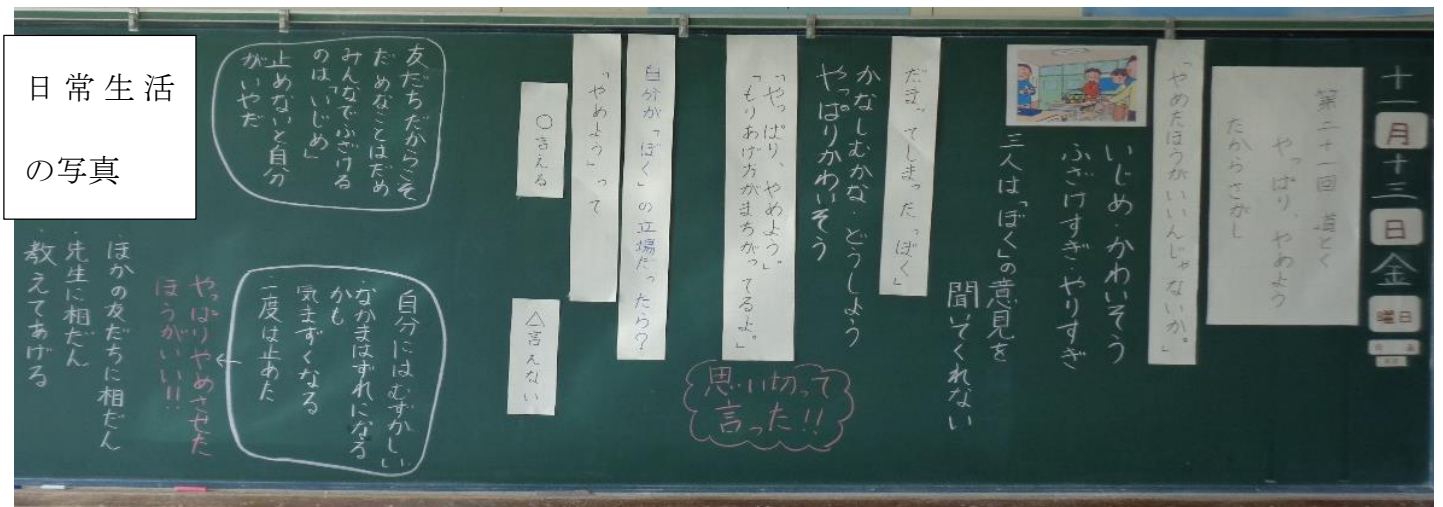 十一月十三日金曜日
第二十一回 道とく
やっぱり、やめよう
たからさがし
「やめたほうがいいんじゃないか。」
いじめ・かわいそう
ふざけすぎ・やりすぎ
三人は「ぼく」の意見を
聞いてくれない
だまってしまった「ぼく」
かなしむかな・どうしよう
やっぱりかわいそう
「やっぱり、やめよう。」
「もりあげ方がまちがってるよ。」
思い切って
言った!!
自分が「ぼく」の立場だったら?
「やめよう」って
○言える
△言えない
友だちだからこそ
だめなことはだめ
みんなでふざける
のは「いじめ」
止めないと自分
がいやだ
自分にはむずかしい
なかまはずれになる
かも
気まずくなる
一度は止めた
←
やっぱりやめさせた
ほうがいい!!
・ほかの友だちに相だん
・先生に相だん
・教えてあげる
日常生活
の写真